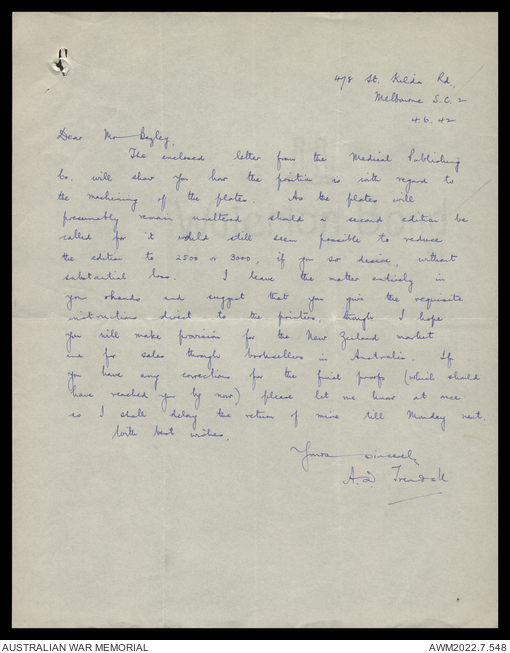 478 St. Kilda Rd.,
Melbourne S.C. 2
4.6.42
Dear Mr Bazley,
The enclosed letter from the Medical Publishing
Co. will show you how the position is with regard to
the machining of the plates. As the plates will
presumably remain unaltered should a second edition be
called for it would still seem possible to reduce
the edition to 2500 or 3000, if you so desire, without
substantial loss. I leave the matter entirely in
your hands and suggest that you give the requisite
instructions direct to the printers, though I hope
you will make provision for the New Zealand market
and for sales through booksellers in Australia. If
you have any corrections for the final proofs (which should
have reached you by now) please let me know at once
as I shall delay the return of mine till Monday next.
With best wishes,
Yours sincerely
A. D Trendall
AUSTRALIAN WAR MEMORIAL
AWM2022.7.548